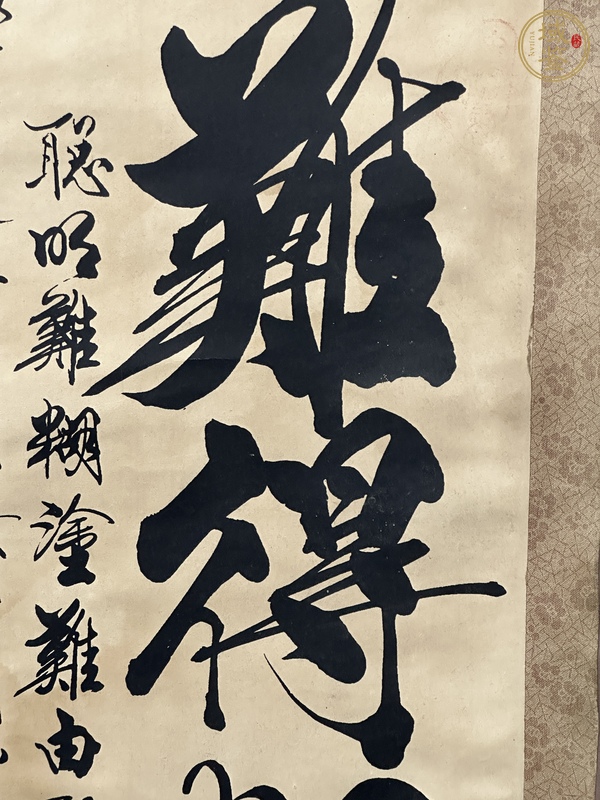 難得
聰明難糊塗難由